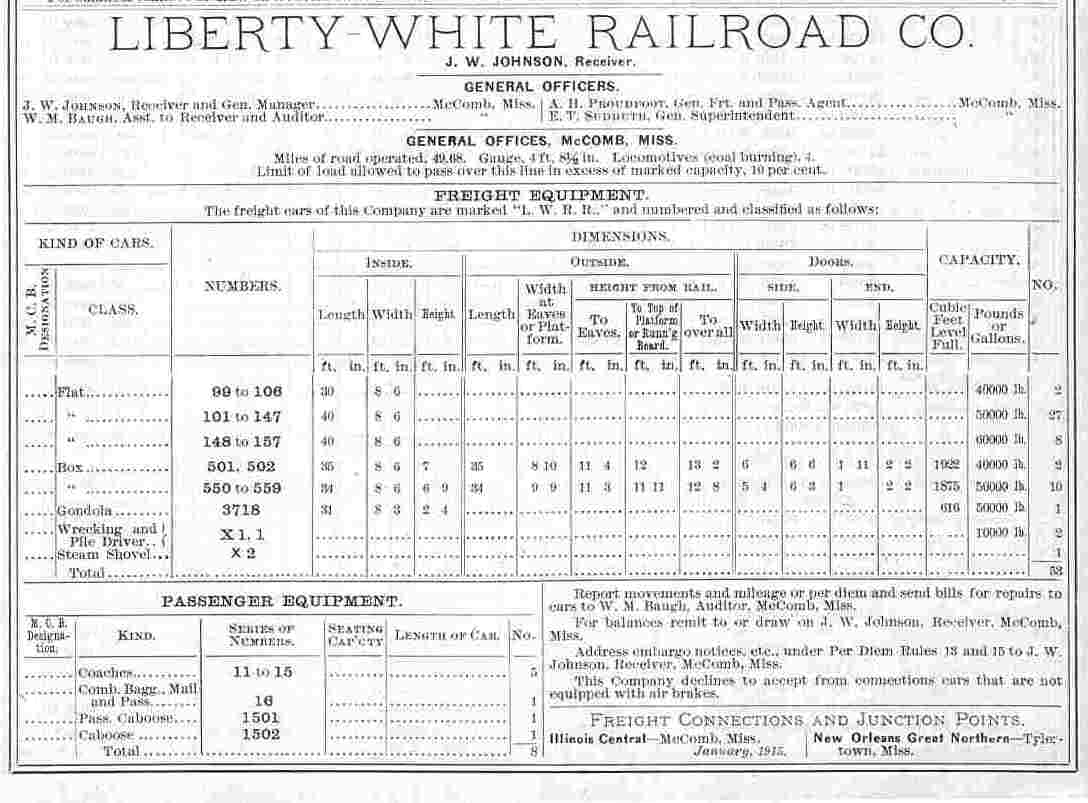 LIBERTY-WHITE RAILROAD CO.
J. W. JOHNSON, Receiver.
GENERAL OFFICERS.
J. W. JOHNSON, Receiver and Gen. Manager..................McComb, Miss.
W. M. BAUGH, Asst. to Receiver and Auditor.................. "
A. H. PROUDFOOT, Gen. Frt. and Pass. Agent..................McComb, Miss.
E. T. SUDDUTH, Gen. Superintendent.................. "
GENERAL OFFICES, McCOMB, MISS.
Miles of road operated, 49.68. Gauge, 4 ft, 8½ in. Locomotives (coal burning), 4.
Limit of load allowed to pass over this line in excess of marked capacity, 10 per cent.
FREIGHT EQUIPMENT.
The freight cars of this Company are marked "L. W. R. R.," and numbered and classified as follows:
KIND OF CARS. NUMBERS. DIMENSIONS. CAPACITY. NO.
INSIDE. OUTSIDE. DOORS.
M. C. B. DESIGNATION CLASS. Length Width Height Length Width at Eaves or Platform. HEIGHT FROM RAIL. SIDE. END. Cubic Feet Level Full. Pounds or Gallons.
To Eaves. To Top of Platform or Runn'g Board. To over all Width Height. Width Height.
ft. in. ft. in. ft. in. ft. in. ft. in. ft. in. ft. in. ft. in. ft. in. ft. in. ft. in. ft. in.
Flat 99 to 106 30 8 6 40000 lb. 2
" 101 to 147 40 8 6 50000 lb. 27
" 148 to 157 40 8 6 60000 lb. 8
Box 501, 502 35 8 6 7 35 8 10 11 4 12 13 2 6 6 6 1 11 2 2 1922 40000 lb. 2
" 550 to 559 34 8 6 6 9 34 9 9 11 3 11 11 12 8 5 4 6 3 1 2 2 1875 50000 lb. 10
Gondola 3718 31 8 3 2 4 616 50000 lb. 1
Wrecking and Pile Driver.. X 1, 1 10000 lb. 2
Steam Shovel... X 2 1
Total 53
PASSENGER EQUIPMENT.
M. C. B. Designation. KIND. SERIES OF NUMBERS. SEATING CAP'CTY LENGTH OF CAR. NO.
Coaches 11 to 15 5
Comb. Bagg., Mail and Pass. 16 1
Pass. Caboose 1501 1
Caboose 1502 1
Total 8
Report movements and mileage or per diem and send bills for repairs to
cars to W. M. Baugh, Auditor, McComb, Miss.
For balances remit to or draw on J. W. Johnson, Receiver, McComb,
Miss.
Address embargo notices, etc., under Per Diem Rules 13 and 15 to J. W.
Johnson, Receiver, McComb, Miss.
This Company declines to accept from connections cars that are not
equipped with air brakes.
FREIGHT CONNECTIONS AND JUNCTION POINTS.
Illinois Central—McComb, Miss.
New Orleans Great Northern—Tyler-
town, Miss.
January, 1915.